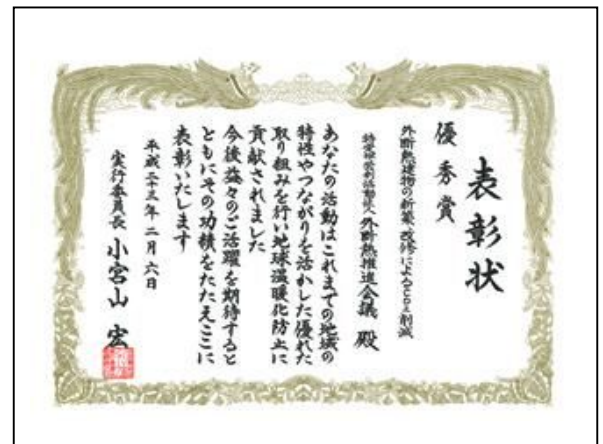 表彰状
優秀賞
外断熱建物の新築・改修によるCO2削減
特定非営利活動法人 外断熱推進会議 殿
あなたの活動はこれまでの地域の
特性やつながりを活かした優れた
取り組みを行い地球温暖化防止に
貢献されました
今後益々のご活躍を期待すると
ともにその功績をたたえここに
表彰いたします
平成二十三年 二月 六日
実行委員長 小宮山 宏